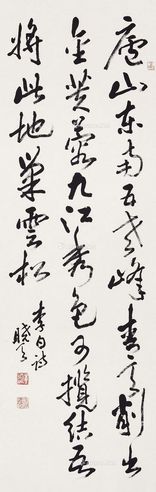 廬山东南五老峰青天削出
金芙蓉九江秀色可攬结吾
將此地巢雲松
李白诗